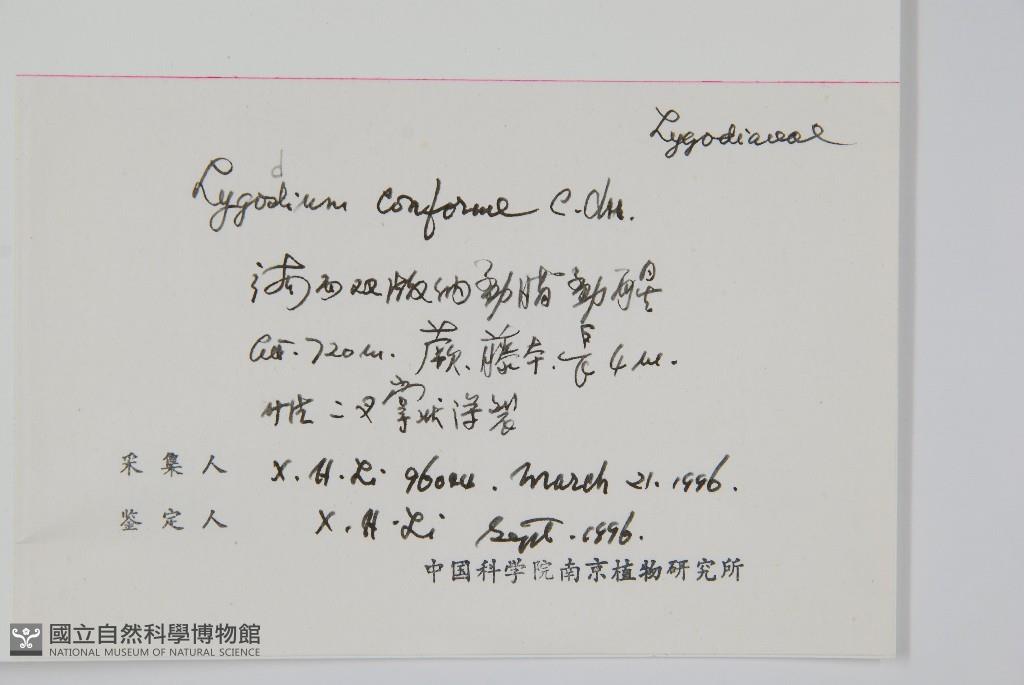 Lygodiaceae
d
Lygodium conforme C. Chr.
西双版纳勐腊勐醒
alt. 720 m. 蕨、藤本. 長 4 m.
二叉掌状深裂
采集人 X. H. Li 96044. March 21. 1996.
鉴定人 X. H. Li Sept. 1996.
中国科学院南京植物研究所
國立自然科學博物館
NATIONAL MUSEUM OF NATURAL SCIENCE